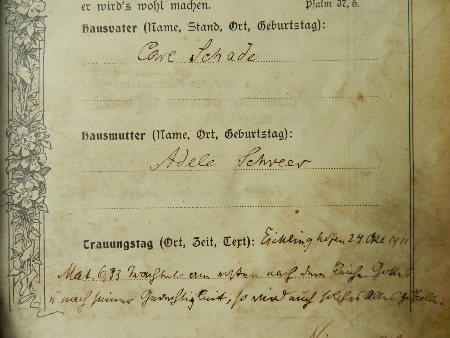 er wird's wohl machen. Psalm 37, 5.
Hausvater (Name, Stand, Ort, Geburtstag):
Carl Schade
Hausmutter (Name, Ort, Geburtstag):
Adele Schreer
Trauungstag (Ort, Zeit, Text): Eichlinghofen 24 Okt. 1911
Mat. 6,33 Trachtet am ersten nach dem Reiche Gottes
u nach seiner Gerechtigkeit, so wird euch solches Alles